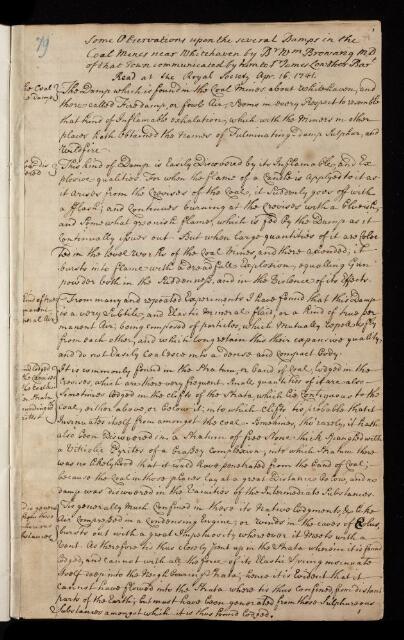 79
Some Observations upon the several Damps in the
Coal Mines near Whitehaven by Dr Wm Brownrigg MD
of that Town communicated by him to Sr James Lowther Bart
Read at the Royal Society Apr. 16. 1741.
The Damp which is found in the Coal Mines about Whitehaven, and
there called Fire damp, or fowl Air, seems in every Respect to resemble
that kind of Inflamable exhalation, which with the Miners in other
places hath obtained the names of Fulminating-damp, Sulphur, and
Wildfire.
This kind of Damp is Easily Discovered by its Inflamable and Ex-
plosive qualities. For when the flame of a Candle is applyed to it as
it arises from the Crevises of the Coal, it suddenly goes off with
a flash, and Continues burning at the Crevises with a Blewish,
and somewhat greenish flame, which is fed by the Damp as it
Continually issues out. But when large quantities of it are Collec-
ted in the level works of the Coal Mines, and there accended, it
bursts into flame with a dreadfull Explosion, equalling Gun
powder both in the Suddenness, and in the Violence of its Effects.
From many and repeated Experiments I have found that this Damp
is a very Subtile, and Elastic Mineral fluid, or a Kind of true per-
manent Air, being composed of particles, which Mutually repell
from each other, and which long retain this their expansive quality,
and do not Easily Coalesce into a dense and Compact Body.
It is commonly found in the Stratum, or band of Coal, lodged in the
Crevises, which are there very frequent. Small quantities of it are also
Sometimes lodged in the clifts of the Strata, which lie Contiguous to the
Coal, either above, or below it, into which Clifts tis probable that it
insinuates itself from amongst the Coal. Sometimes, tho' rarely, it hath
also been Discovered in a Stratum of free Stone thick Spangled with
a Vitriolic Pyrites of a Brassy Complexion, into which Stratum there
was no likelyhood that it could have penetrated from the band of Coal;
because the Coal in those places lay at a great Distance below, and no
damp was discovered in the Vacuities of the Intermediate Substances.
Tis generally much Confined in these its Native lodgments, & like
Air Compressed in a Condensing Engine, or winds in the caves of Eolus,
bursts out with a great Impetuosity wherever it Meets with a
vent. As therefore tis thus closely pent up in the Strata wherein it is first
lodged, and cannot with all the force of its Elastic Spring insinuate
itself deep into the Neighbouring Strata; hence it is Evident that it
cannot have flowed into the Strata where tis thus Confined, from distant
parts of the Earth; but must have been generated from those Sulphureous
Substances amongst which it is thus found lodged.